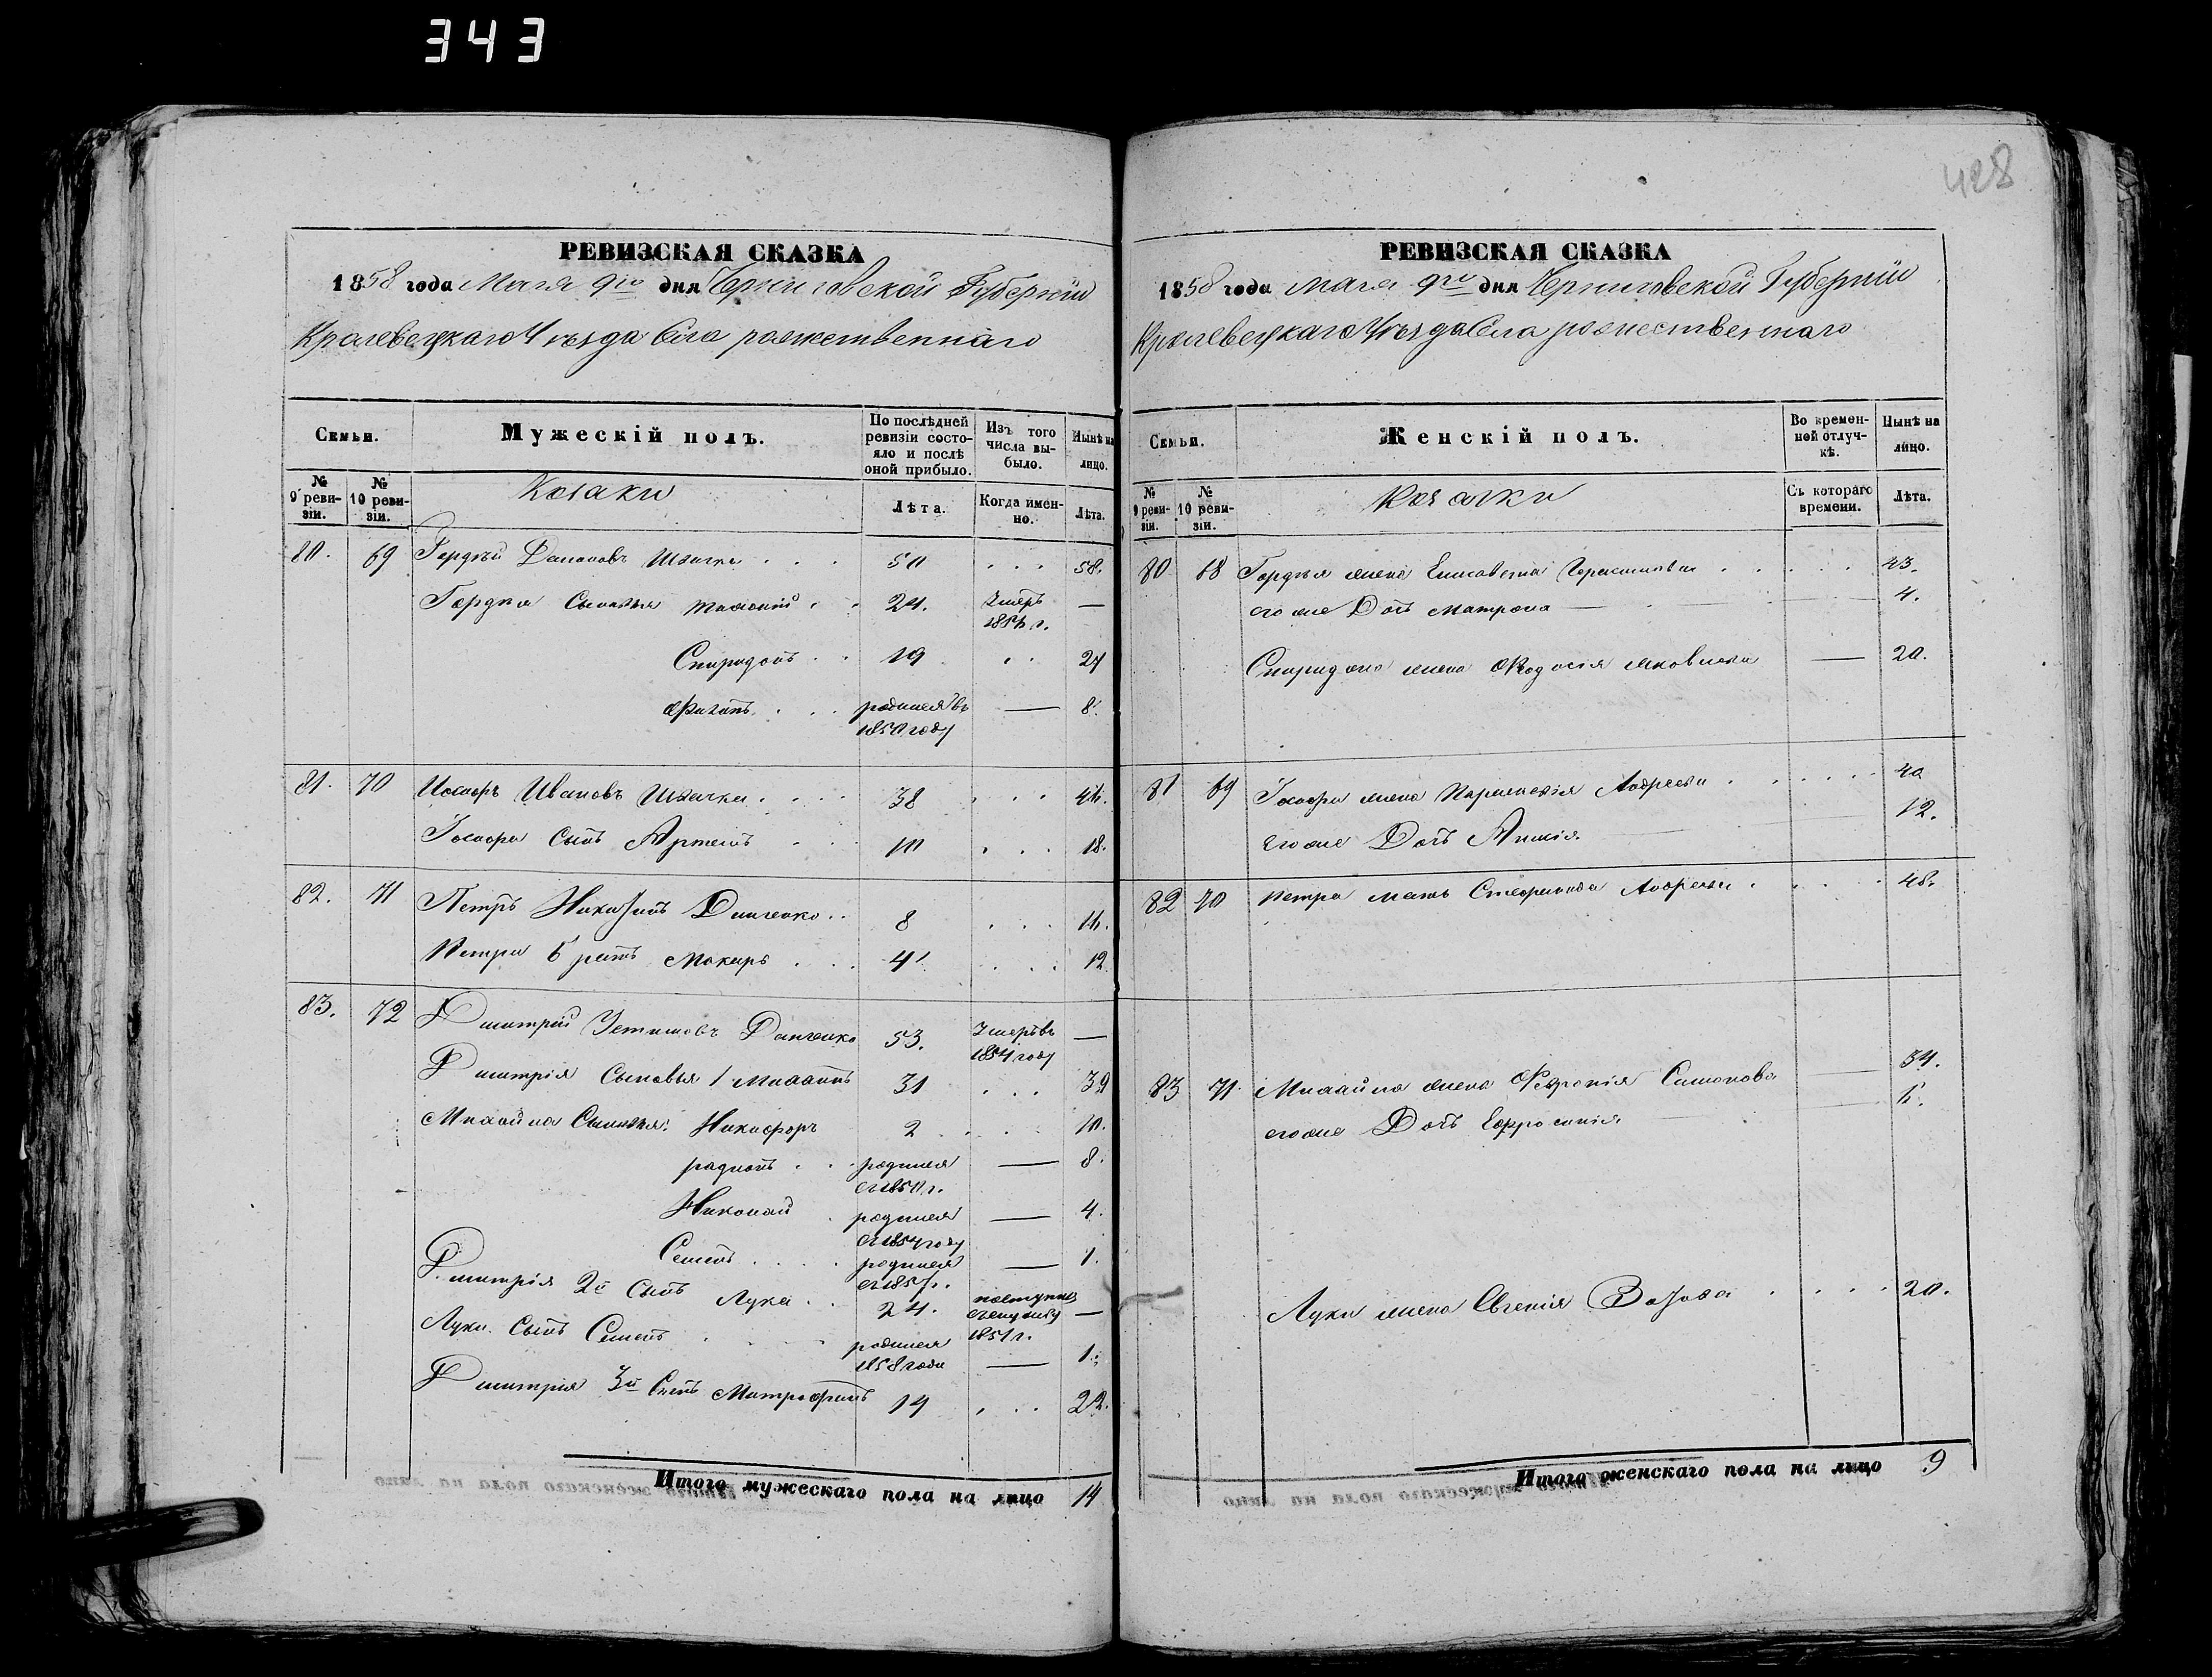 343
428
РЕВИЗСКАЯ СКАЗКА
1858 года Мая 9го дня Черниговской Губернiи
Кролевецкаго Уѣзда Села рожественнаго
Семьи.
Мужескiй полъ.
По послѣдней ревизiи состояло и послѣ оной прибыло.
Изъ того числа выбыло.
Нынѣ на лицо.
№ 9 ревизiи.
№ 10 ревизiи.
Козаки
Лѣта.
Когда именно.
Лѣта.
80. 69 Гордѣй 50 . . . 58.
Гордѣя Сыновья 24. Умеръ —
Спиридонъ . . 19 . . 27
родился въ 1850 году — 8.
81. 70 Иосифъ Ивановъ 38 . . . 46.
Iосифа Сынъ Артемъ . . . 10 . . . 18.
82. 71 Петръ 8 . . . 16.
Петра братъ Макаръ . . . 4 . . . 12
83. 72 Дмитрiй Устимовъ Данченко 53. Умеръ въ 1854 году —
Дмитрiя Сыновья 1 Михаилъ 31 . . . 39
Михаила Сыновья: Никифоръ 2 . . . 10.
родился въ 1850 г. — 8.
Николай . родился въ 1854 году — 4.
Семенъ . . . . родился въ 1857 г. — 1.
Дмитрiя 2й Сынъ Лука . . 24. —
Луки Сынъ Семенъ . . . родился 1858 года — 1.
Дмитрiя 3й Сынъ Митрофанъ 14 . . . 22.
Итого мужескаго пола на лицо 14
РЕВИЗСКАЯ СКАЗКА
1858 года мая 9го дня Черниговской Губернiи
Кролевецкаго Уѣзда Села рожественнаго
Семьи.
Женскiй полъ.
Во временной отлучкѣ.
Нынѣ на лицо.
№ 9 ревизiи.
№ 10 ревизiи.
Козачки
Съ котораго времени.
Лѣта.
80 68 Гордѣя жена Елисавета . . . . . 43.
его же Дочь Матрона — 4.
Спиридона жена Яковлева — 20.
81 69 Iосифа жена Андреева . . . . . 40
его же Дочь 12.
82 70 Петра мать Андреева . . . . 46.
83 71. Михайла жена — 34.
его же Дочь Ефросинiя — 6.
Луки жена Евгенiя . . . . 20.
Итого женскаго пола на лицо 9